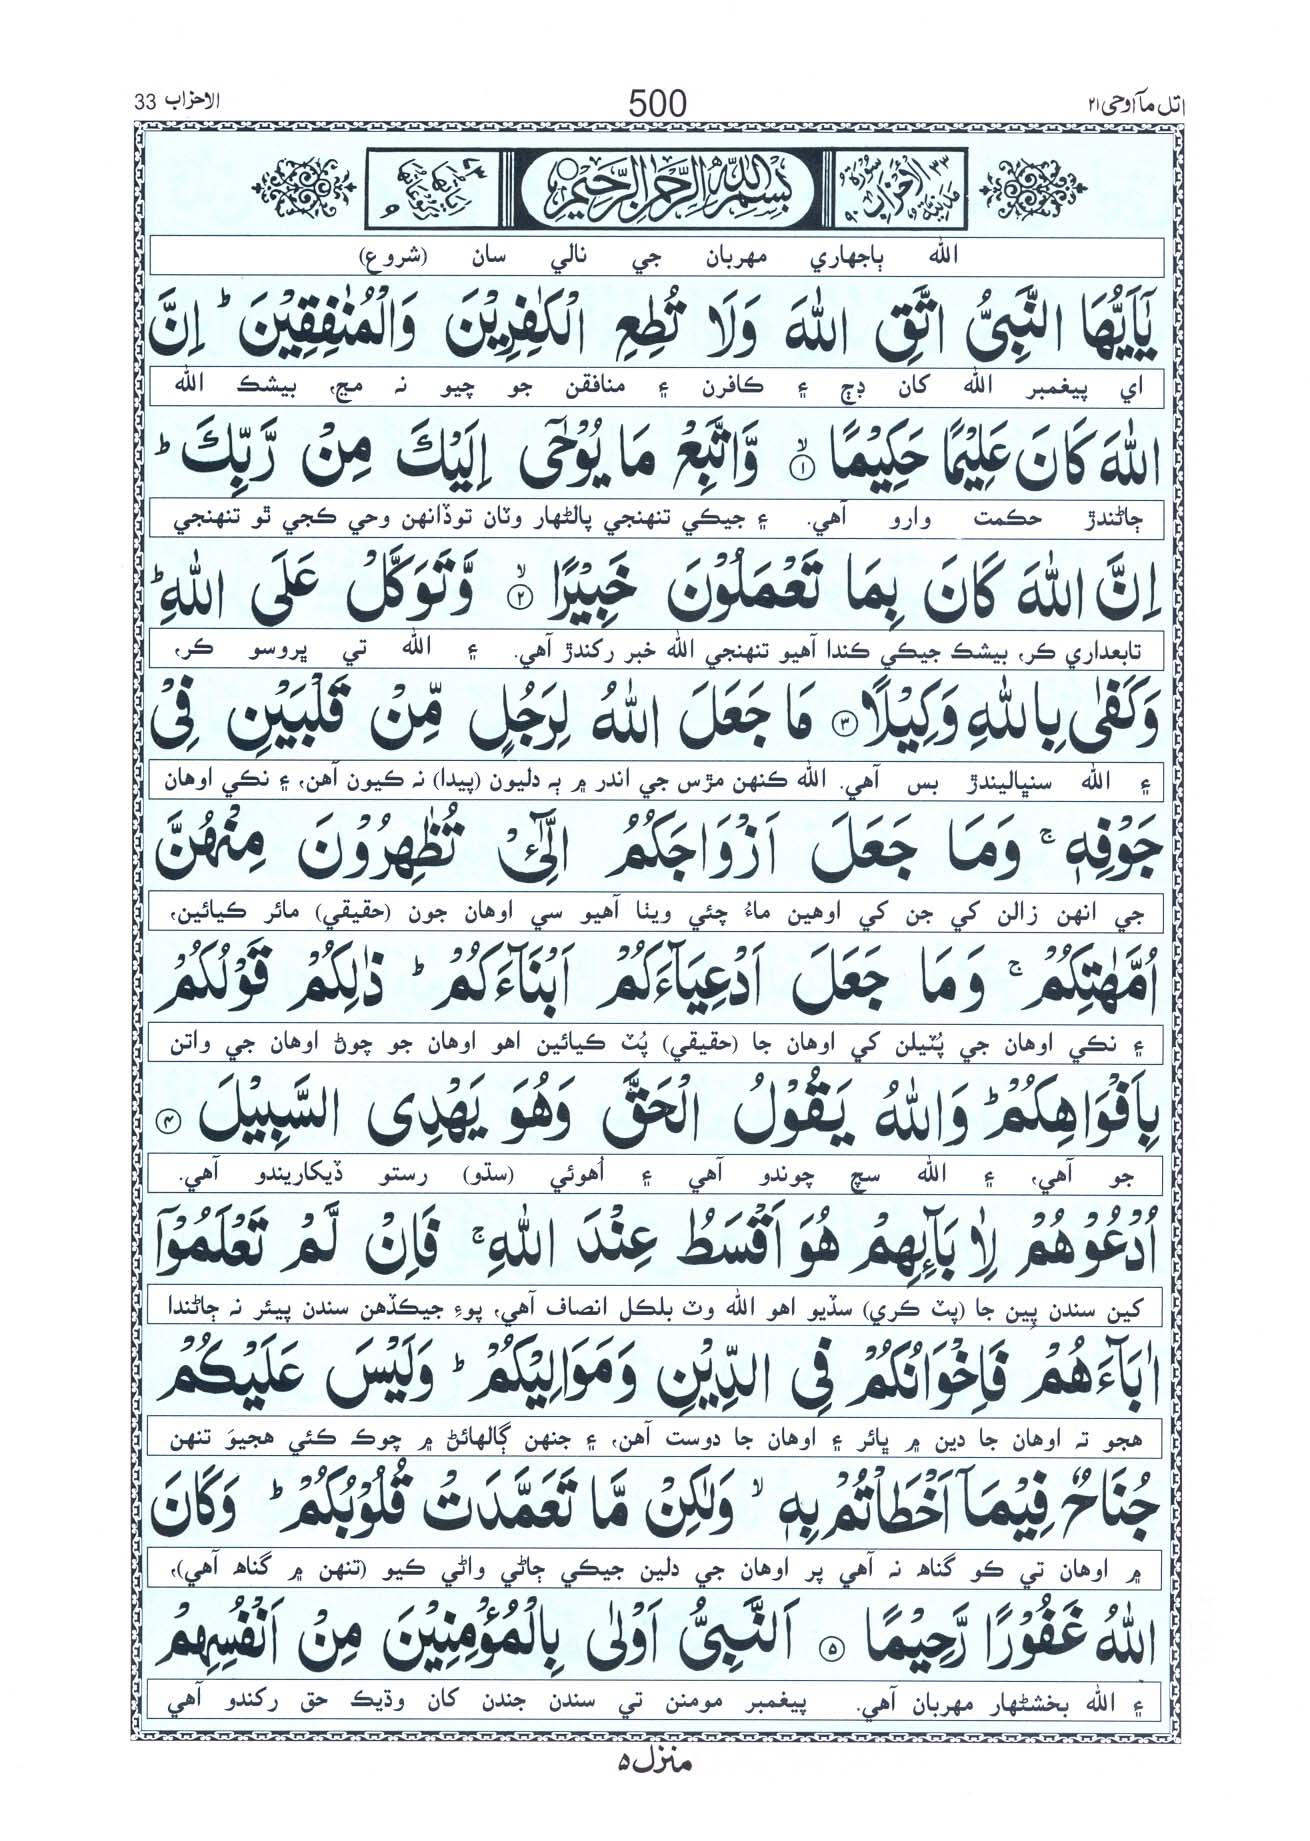 اتل مآ اوحی ۲۱
500
الاحزاب 33
۳۳ سُوْرَةُ الْاَحْزَابِ مَدَنِيَّةٌ ۹۰
بِسْمِ اللّٰهِ الرَّحْمٰنِ الرَّحِيْمِ
اٰيَاتُهَا ۷۳ رُكُوْعَاتُهَا ۹
الله ٻاجهاري مهربان جي نالي سان (شروع)
يٰۤاَيُّهَا النَّبِيُّ اتَّقِ اللّٰهَ وَلَا تُطِعِ الْكٰفِرِيْنَ وَالْمُنٰفِقِيْنَ ؕ اِنَّ
اي پيغمبر الله کان ڊڄ ۽ ڪافرن ۽ منافقن جو چيو نہ مڃ، بيشڪ الله
اللّٰهَ كَانَ عَلِيْمًا حَكِيْمًا ۙ﴿۱﴾ وَّاتَّبِعْ مَا يُوْحٰۤى اِلَيْكَ مِنْ رَّبِّكَ ؕ
ڄاڻندڙ حڪمت وارو آهي. ۽ جيڪي تنهنجي پالڻهار وٽان توڏانهن وحي ڪجي ٿو تنهنجي
اِنَّ اللّٰهَ كَانَ بِمَا تَعْمَلُوْنَ خَبِيْرًا ۙ﴿۲﴾ وَّتَوَكَّلْ عَلَى اللّٰهِ ؕ
تابعداري ڪر، بيشڪ جيڪي ڪندا آهيو تنهنجي الله خبر رکندڙ آهي. ۽ الله تي ڀروسو ڪر،
وَكَفٰى بِاللّٰهِ وَكِيْلًا ﴿۳﴾ مَا جَعَلَ اللّٰهُ لِرَجُلٍ مِّنْ قَلْبَيْنِ فِيْ
۽ الله سنڀاليندڙ بس آهي. الله ڪنهن مڙس جي اندر ۾ ٻہ دليون (پيدا) نہ ڪيون آهن، ۽ نڪي اوهان
جَوْفِهٖ ۚ وَمَا جَعَلَ اَزْوَاجَكُمُ الّٰٓـِٔيْ تُظٰهِرُوْنَ مِنْهُنَّ
جي انهن زالن کي جن کي اوهين ماءُ چئي ويٺا آهيو سي اوهان جون (حقيقي) مائر ڪيائين،
اُمَّهٰتِكُمْ ۚ وَمَا جَعَلَ اَدْعِيَآءَكُمْ اَبْنَآءَكُمْ ؕ ذٰلِكُمْ قَوْلُكُمْ
۽ نڪي اوهان جي پُٽيلن کي اوهان جا (حقيقي) پُٽ ڪيائين اهو اوهان جو چوڻ اوهان جي واتن
بِاَفْوَاهِكُمْ ؕ وَاللّٰهُ يَقُوْلُ الْحَقَّ وَهُوَ يَهْدِى السَّبِيْلَ ﴿۴﴾
جو آهي، ۽ الله سچ چوندو آهي ۽ اُهوئي (سڌو) رستو ڏيکاريندو آهي.
اُدْعُوْهُمْ لِاٰبَآئِهِمْ هُوَ اَقْسَطُ عِنْدَ اللّٰهِ ۚ فَاِنْ لَّمْ تَعْلَمُوْۤا
کين سندن پِين جا (پٽ ڪري) سڏيو اهو الله وٽ بلڪل انصاف آهي، پوءِ جيڪڏهن سندن پيئر نہ ڄاڻندا
اٰبَآءَهُمْ فَاِخْوَانُكُمْ فِى الدِّيْنِ وَمَوَالِيْكُمْ ؕ وَلَيْسَ عَلَيْكُمْ
هجو تہ اوهان جا دين ۾ ڀائر ۽ اوهان جا دوست آهن، ۽ جنهن ڳالهائڻ ۾ چوڪ ڪئي هجيوَ تنهن
جُنَاحٌ فِيْمَاۤ اَخْطَاْتُمْ بِهٖ ۙ وَلٰكِنْ مَّا تَعَمَّدَتْ قُلُوْبُكُمْ ؕ وَكَانَ
۾ اوهان تي ڪو گناهہ نہ آهي پر اوهان جي دلين جيڪي ڄاڻي واڻي ڪيو (تنهن ۾ گناهہ آهي)،
اللّٰهُ غَفُوْرًا رَّحِيْمًا ﴿۵﴾ اَلنَّبِيُّ اَوْلٰى بِالْمُؤْمِنِيْنَ مِنْ اَنْفُسِهِمْ
۽ الله بخشڻهار مهربان آهي. پيغمبر مومنن تي سندن جندن کان وڌيڪ حق رکندو آهي
منزل ۵